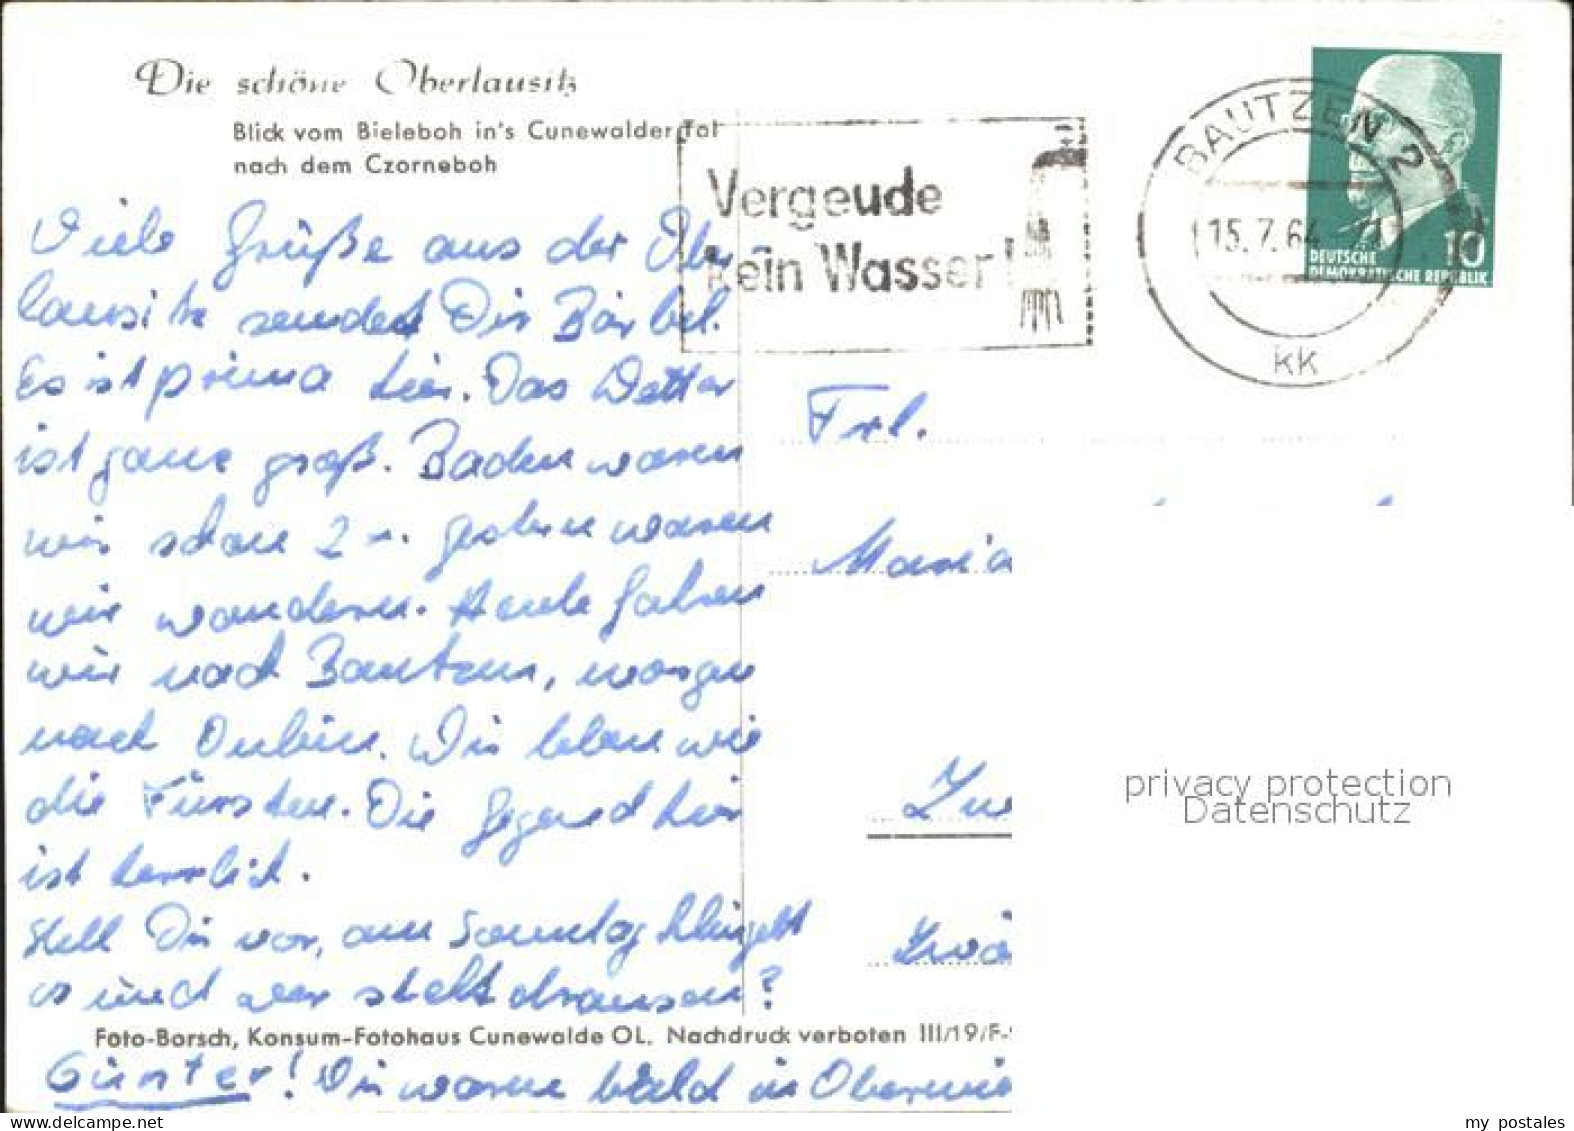 Die schöne Oberlausitz
Blick vom Bieleboh in's Cunewalder Tal
nach dem Czorneboh
Vergeude
kein Wasser!
BAUTZEN 2
15.7.64
kk
10
DEUTSCHE
DEMOKRATISCHE REPUBLIK
Viele Grüße aus der Ober
lausitz sendet Dir Bärbel.
Es ist prima hier. Das Wetter
ist ganz groß. Baden waren
wir schon 2 x. Gestern waren
wir wandern. Heute fahren
wir nach Bautzen, morgen
nach Oybin. Wir leben wie
die Fürsten. Die Gegend hier
ist herrlich.
Stell Dir vor, am Sonntag klingelt
es und wer steht draussen?
Günter! Wir waren bald in Oberwie
Frl.
Maria
Zwö
Foto-Borsch, Konsum-Fotohaus Cunewalde OL. Nachdruck verboten III/19/F-
privacy protection
Datenschutz
www.delcampe.net
my_postales